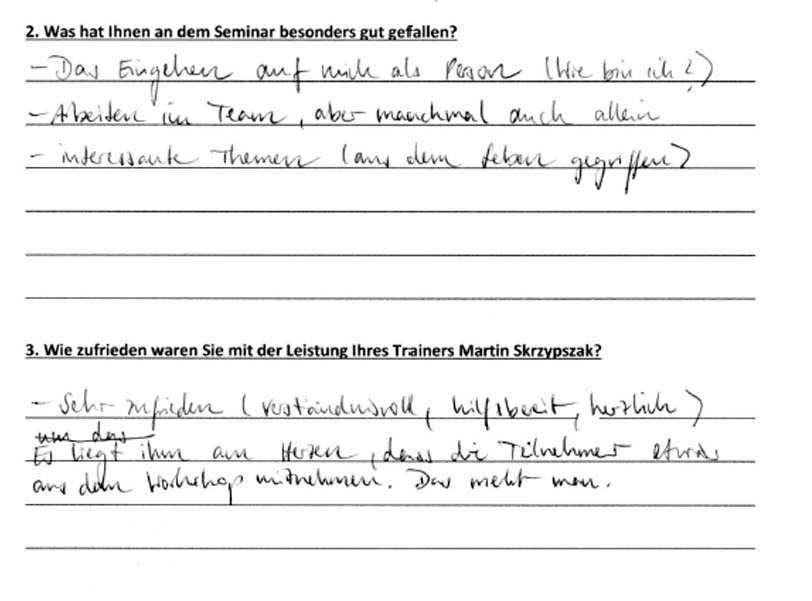 2. Was hat Ihnen an dem Seminar besonders gut gefallen?
- Das Eingehen auf mich als Person (Wie bin ich?)
- Arbeiten im Team, aber manchmal auch allein
- interessante Themen (aus dem Leben gegriffen)
3. Wie zufrieden waren Sie mit der Leistung Ihres Trainers Martin Skrzypszak?
- Sehr zufrieden (verständnisvoll, hilfsbereit, herzlich)
um das
Es liegt ihm am Herzen, dass die Teilnehmer etwas
aus dem Workshop mitnehmen. Das merkt man.